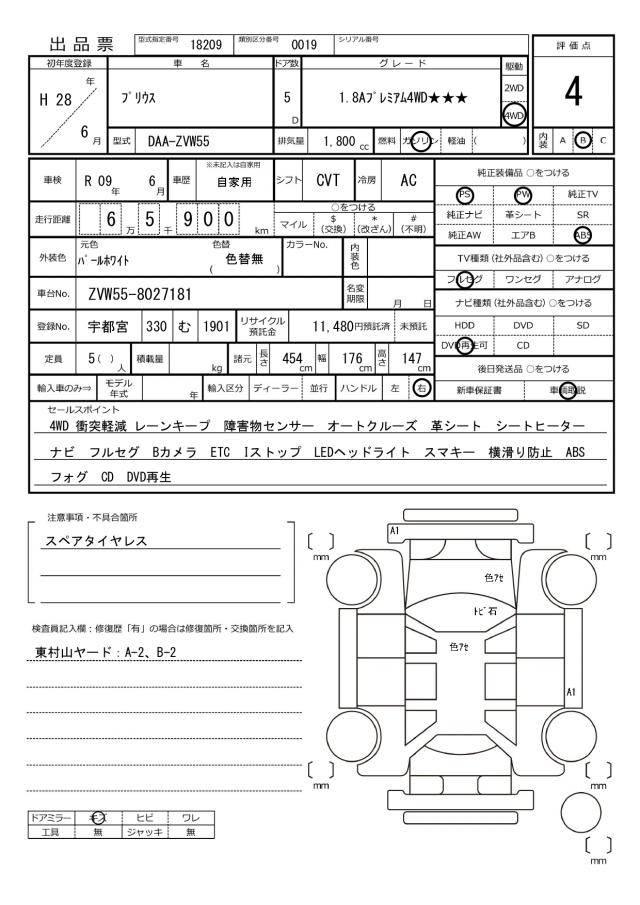 出品票
型式指定番号 18209 類別区分番号 0019 シリアル番号
評価点
4
初年度登録 車名 ドア数 グレード 駆動
H 28 年 6 月
ﾌﾟﾘｳｽ
5 D
1.8Aﾌﾟﾚﾐｱﾑ4WD★★★
2WD
4WD
型式 DAA-ZVW55 排気量 1,800 cc 燃料 ガソリン 軽油 ( )
内装 A B C
車検 R 09 年 6 月 車歴 ※未記入は自家用 自家用 シフト CVT 冷房 AC
純正装備品 ○をつける
PS PW 純正TV
純正ナビ 革シート SR
純正AW エアB ABS
走行距離 6 万 5 千 9 0 0 km
○をつける
マイル $(交換) *(改ざん) #(不明)
外装色 元色 ﾊﾟｰﾙﾎﾜｲﾄ 色替 ( 色替無 ) カラーNo. 内装色
TV種類(社外品含む)○をつける
フルセグ ワンセグ アナログ
車台No. ZVW55-8027181 名変期限 月 日
ナビ種類(社外品含む)○をつける
HDD DVD SD
DVD再生可 CD
登録No. 宇都宮 330 む 1901 リサイクル預託金 11,480円預託済 未預託
定員 5( )人 積載量 kg 諸元 長さ 454 cm 幅 176 cm 高さ 147 cm
後日発送品 ○をつける
新車保証書 車輌取説
輸入車のみ⇒ モデル年式 年 輸入区分 ディーラー 並行 ハンドル 左 右
セールスポイント
4WD 衝突軽減 レーンキープ 障害物センサー オートクルーズ 革シート シートヒーター
ナビ フルセグ Bカメラ ETC Iストップ LEDヘッドライト スマキー 横滑り防止 ABS
フォグ CD DVD再生
注意事項・不具合箇所
スペアタイヤレス
検査員記入欄：修復歴「有」の場合は修復箇所・交換箇所を記入
東村山ヤード：A-2、B-2
A1
色ｱｾ
ﾄﾋﾞ石
色ｱｾ
A1
[ ] mm
[ ] mm
[ ] mm
[ ] mm
[ ] mm
ドアミラー キズ ヒビ ワレ
工具 無 ジャッキ 無